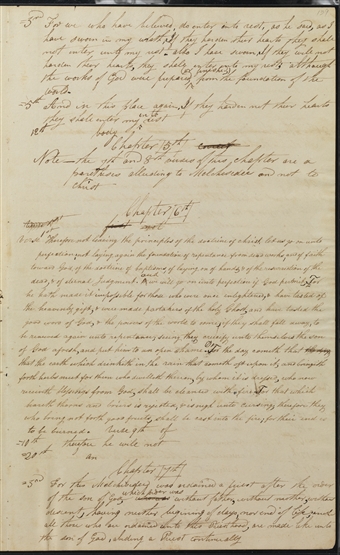 3rd For we who have believed, do enter into rest, as he said, as I
have sworn in my wrath, If they harden their hearts they shall
not enter into my rest. also I have sworn, If they will not
harden their hearts, they shall enter into my rest; although
the works of God were prepared, (or finished,) from the foundation of the
world.
5th And in this place again, if they harden not their hearts
they shall enter into my rest
Chapter 5th correct
Note the 7th and 8th verses of this chapter are a
parenthesis alluding to Melchesedec and not to
Christ
Chapter 6th
Therefore not leaving the principles of the doctrine of christ let us go on unto
perfection not laying again the foundation of repentance from dead works, and of faith
toward God, of the doctrine of baptisms, of laying on of hands, & of the resurrection of the
dead, & of eternal Judgement. & we will go on unto perfection if God permit. For
he hath made it impossible for those who were once enlightened, & have tasted of
the heavenly gift, & were made partakers of the holy Ghost, and have tasted the
good word of God, & the powers of the world to come, if they shall fall away, to
be renewed again unto repentance; seeing they crucify unto themselves the son
of God afresh, and put him to an open shame. For the day cometh that
that the earth which drinketh in the rain that cometh oft upon it, and bringeth
forth herbs meet for them who dwelleth thereon, by whom it is dressed, who now
receiveth blessings from God, shall be cleansed with fire. For that which
beareth thorns and briers is rejected, & is nigh unto cursing; therefore they
who bring not forth good fruits, shall be cast into the fire; for their end is
to be burned.
therefore he will not
20th an
Chapter 7th
3rd For this Melchesedec was ordained a priest after the order
of the son of God, which order was without father, without mother, without
descent, having neither beginning of days, nor end of life, and
all those who are ordained unto this Priesthood, are made like unto
the son of God, abiding a Priest continually